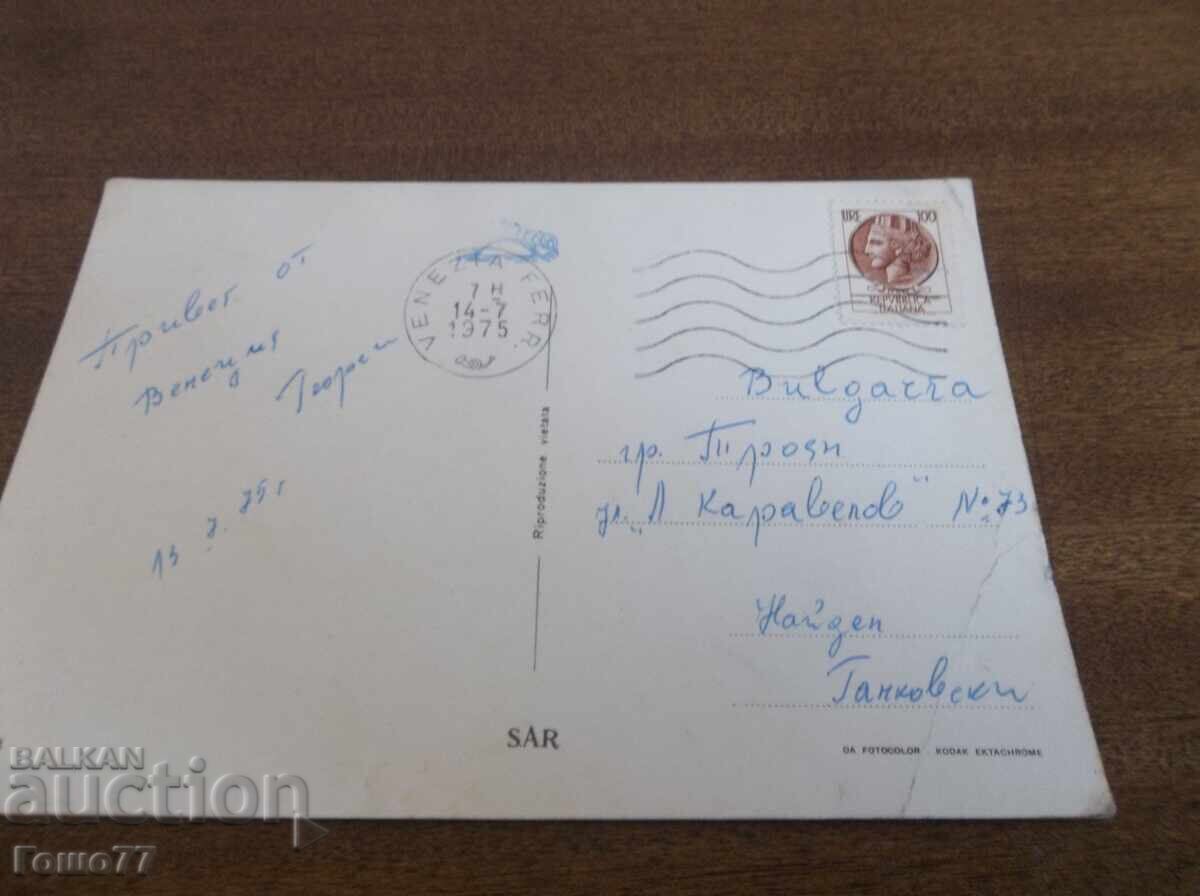 Привет от
Венеция
Георги
13 7. 75 г
VENEZIA FERR.
7 H
14-7
1975
LIRE 100
REPVBBLICA
ITALIANA
гр. Троян
ул. "Л Каравелов" № 73
Найден
Ганковски
Riproduzione vietata
SAR
DA FOTOCOLOR KODAK EKTACHROME
BALKAN
auction
Гошо77